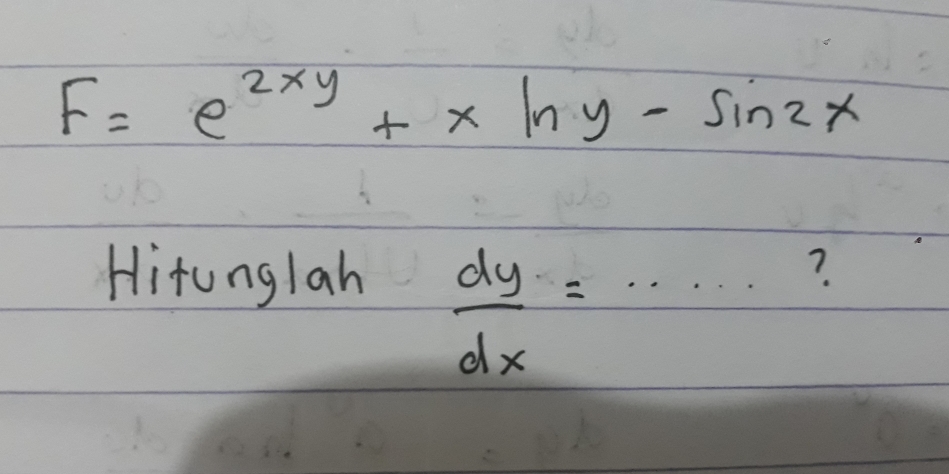 F = e^2xy + x ln y - Sin 2x
Hitunglah dy/dx = ...... ?